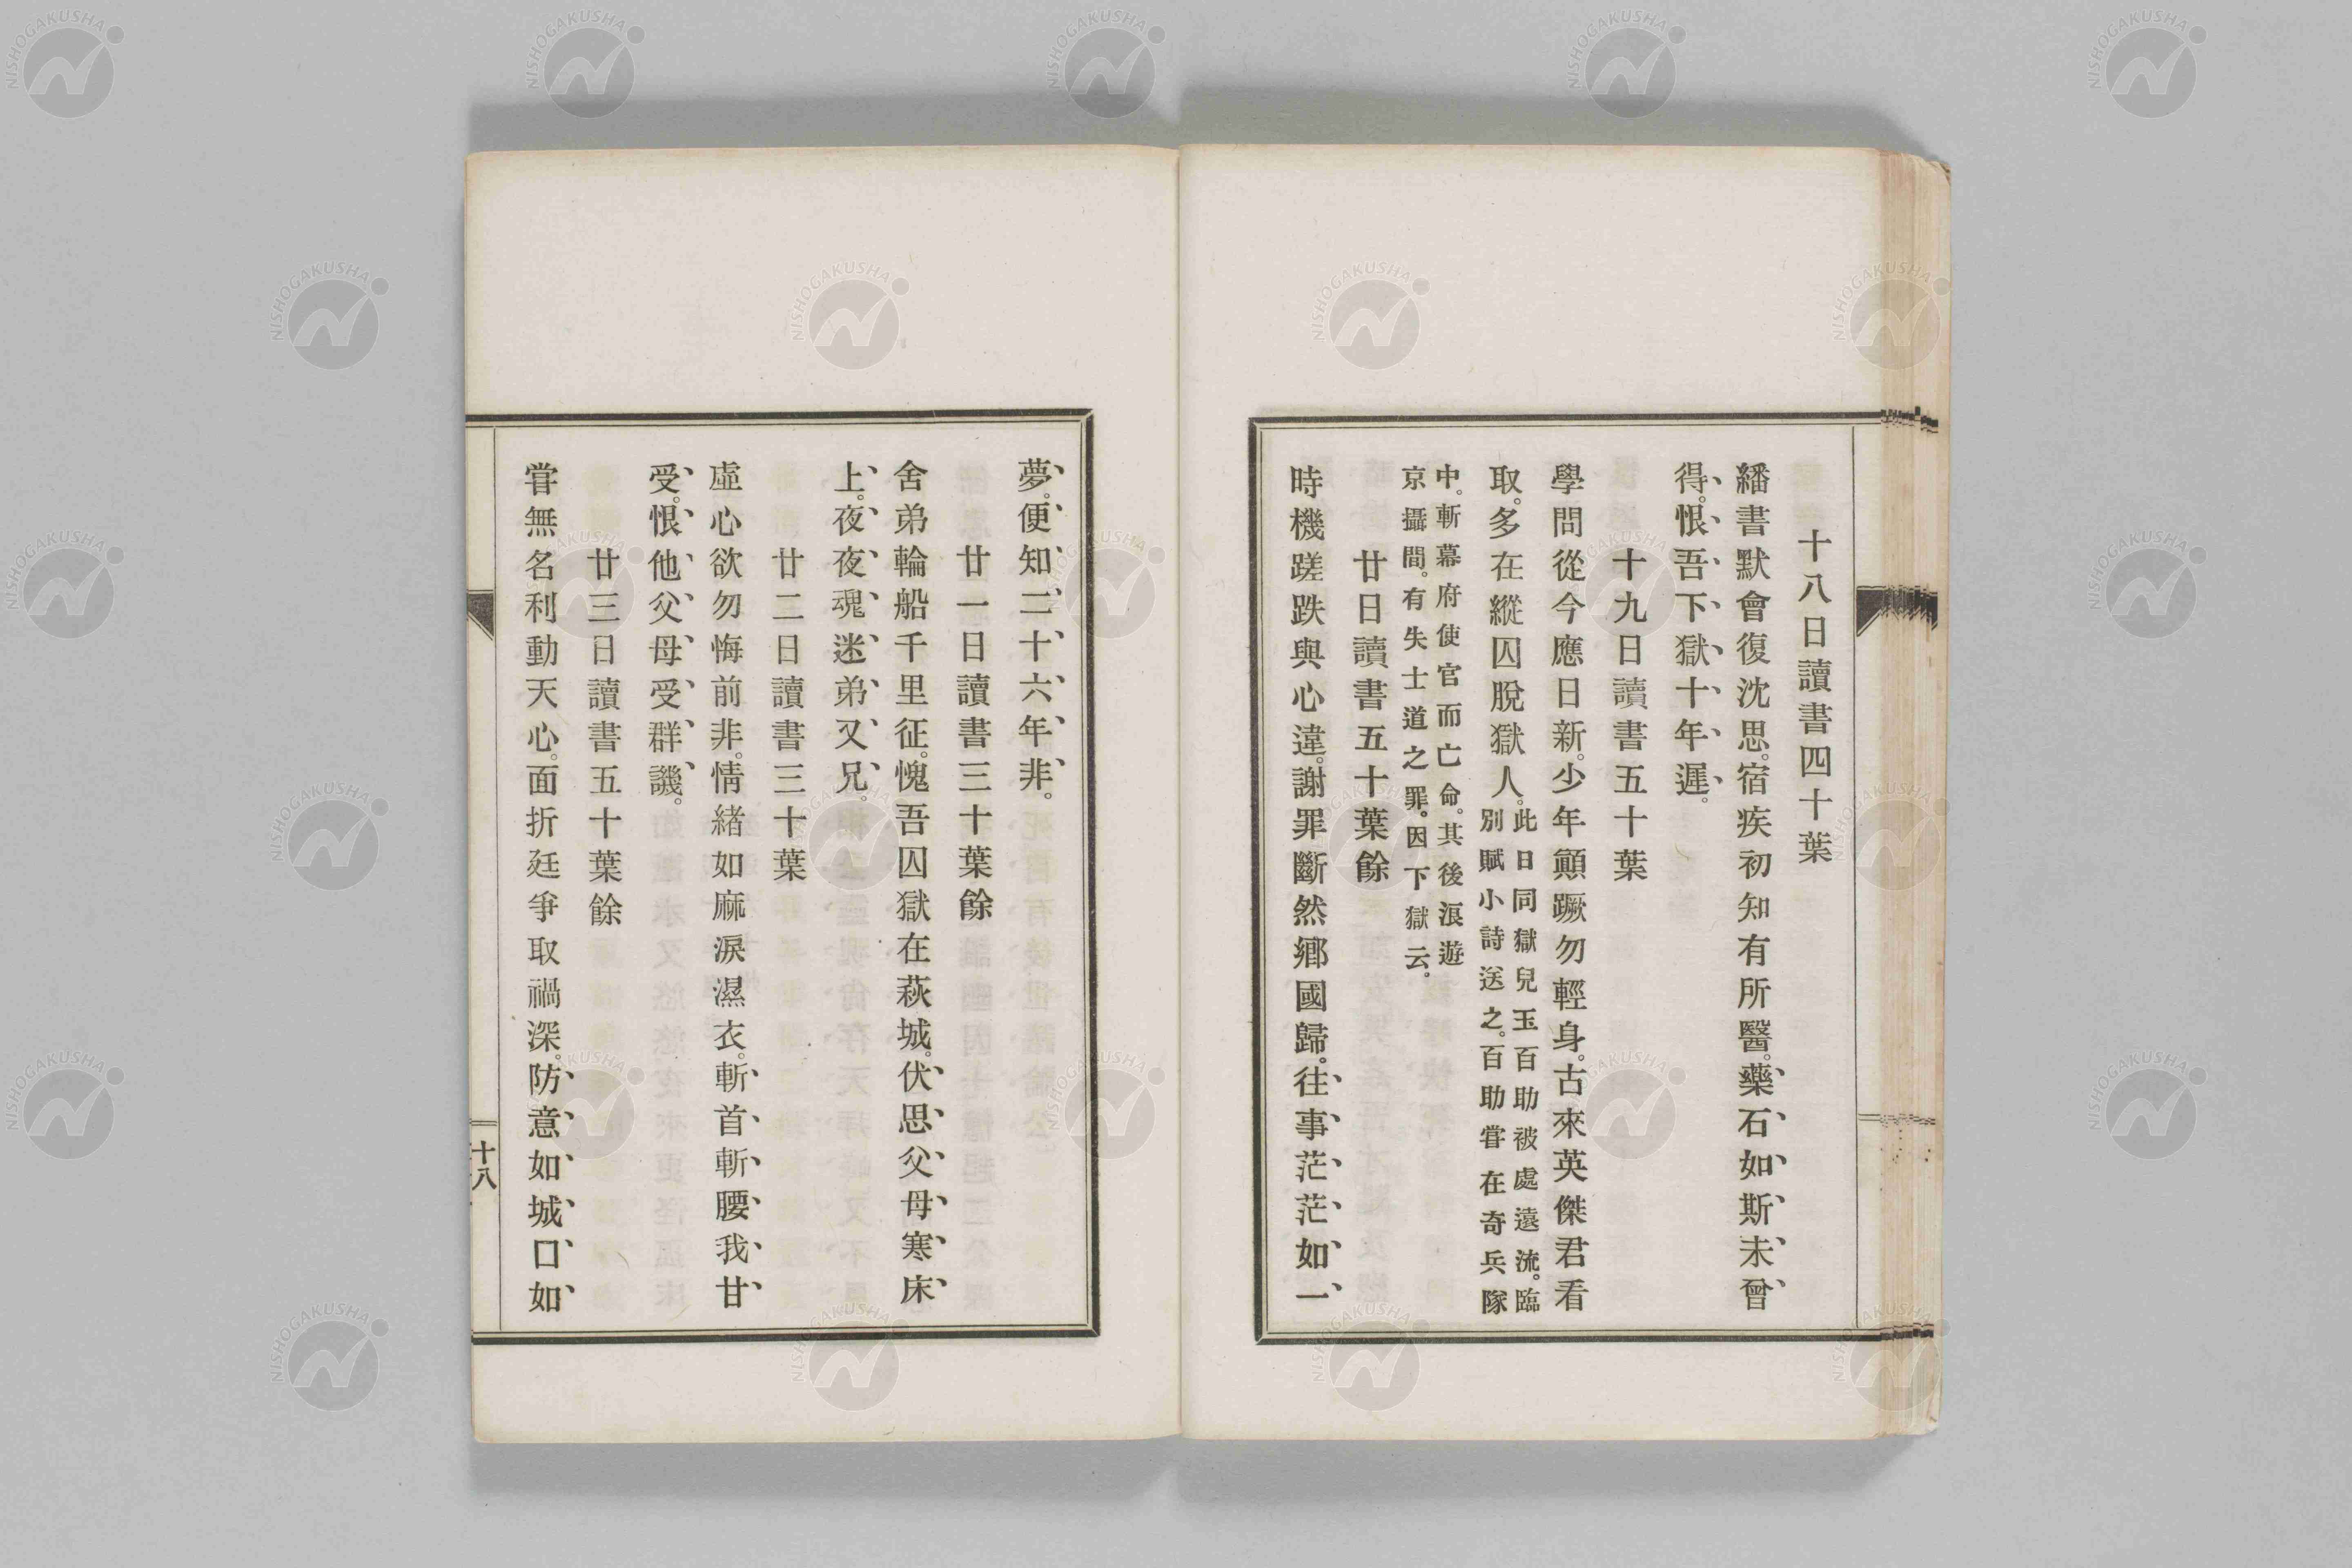 十八日讀書四十葉
繙書默會復沈思。宿疾初知有所醫。藥石如斯未曾
得。恨吾下獄十年遲。
十九日讀書五十葉
學問從今應日新。少年顚蹶勿輕身。古來英傑君看
取。多在縱囚脫獄人。
此日同獄兒玉百助被處遠流。臨
別賦小詩送之。百助甞在奇兵隊
中。斬幕府使官而亡命。其後浪遊
京攝間。有失士道之罪。因下獄云。
廿日讀書五十葉餘
時機蹉跌與心違。謝罪斷然鄕國歸。往事茫茫如一
夢。便知二十六年非。
廿一日讀書三十葉餘
舍弟輪船千里征。愧吾囚獄在萩城。伏思父母寒床
上。夜夜魂迷弟又兄。
廿二日讀書三十葉
虛心欲勿悔前非。情緖如麻淚濕衣。斬首斬腰我甘
受。恨他父母受群譏。
廿三日讀書五十葉餘
甞無名利動天心。面折廷爭取禍深。防意如城口如
十八
NISHOGAKUSHA